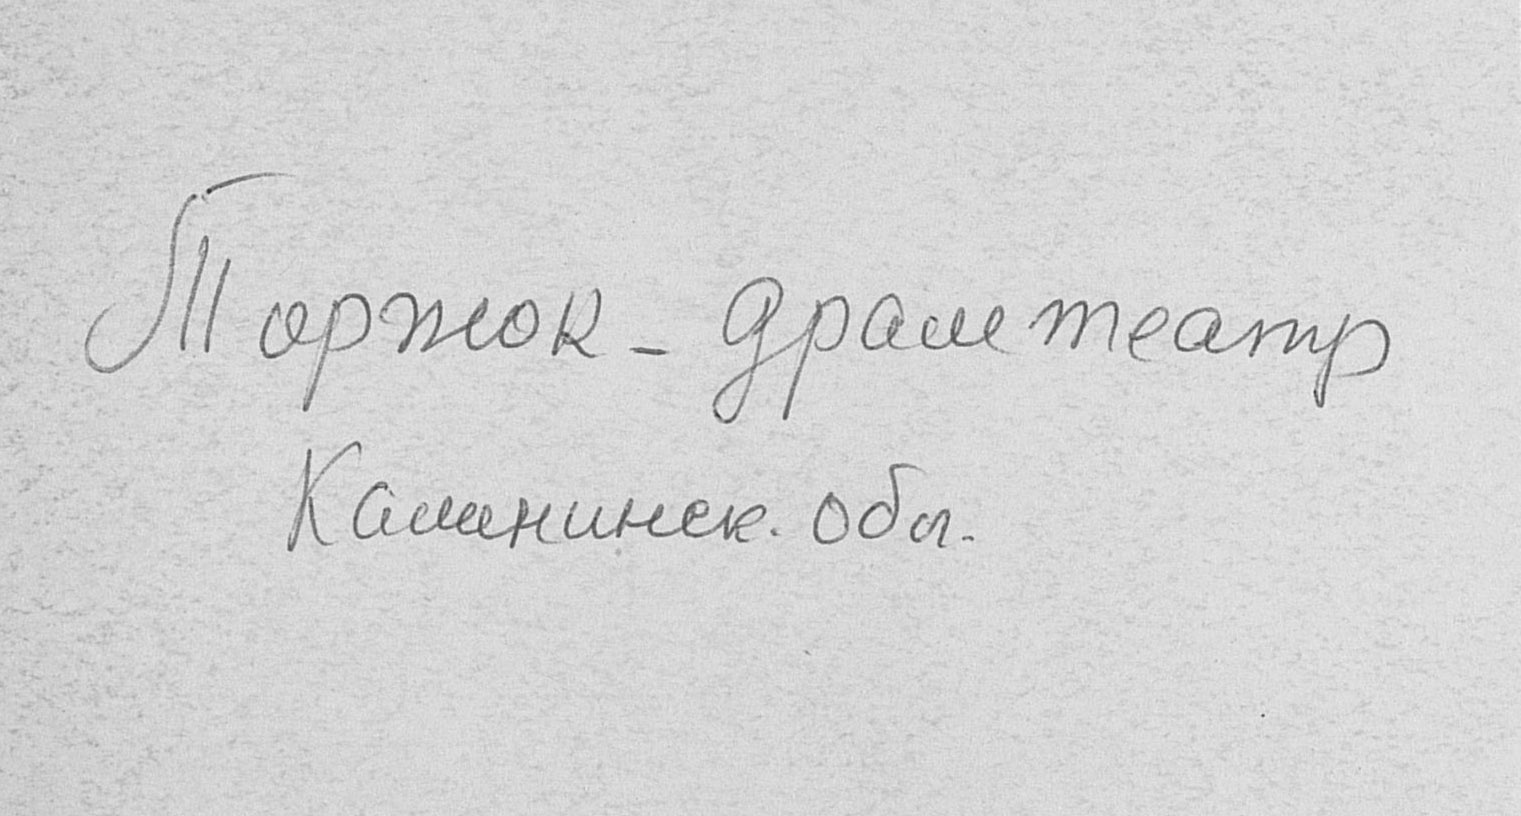 Торжок - драмтеатр
Калининск. обл.